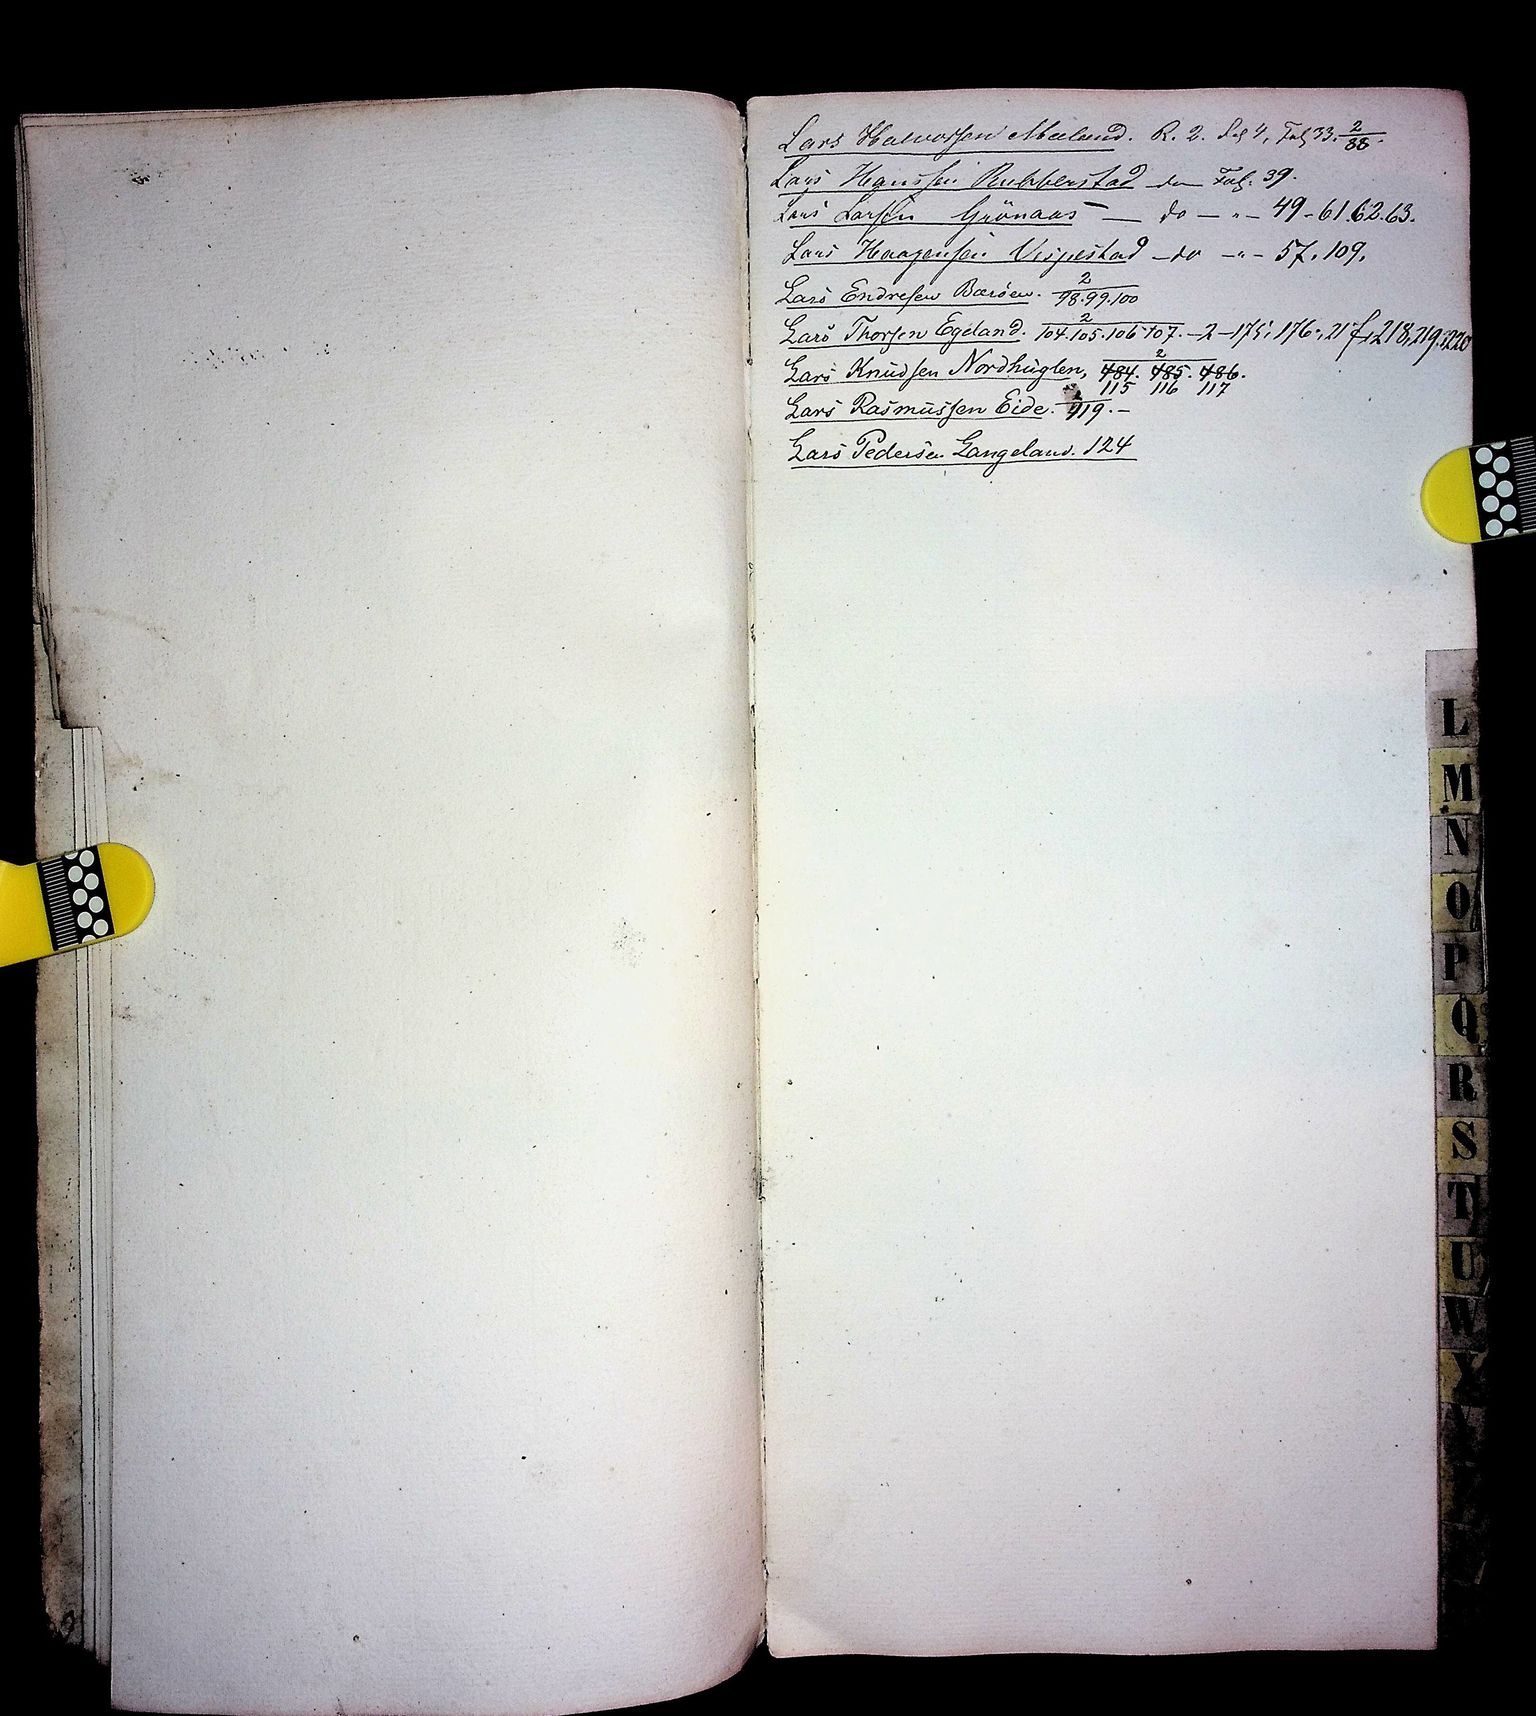 Lars Halvorsen Meeland. R. 2. Fol 4, Fol 33. 2/88.
Lars Hansen Rubberstad do Fol. 39.
Lars Larsen Grönaas — do — " — 49 - 61.62.63.
Lars Haagensen Vispestad — do — " — 57. 109.
Lars Endresen Barsöen. 2/98.99.100
Lars Thorsen Egeland. 2/104.105.106.107. — 2 — 175, 176, 217, 218, 219, 220
Lars Knudsen Nordhuglen, 2/484. 485. 486.
115 116 117
Lars Rasmussen Eide. 119. —
Lars Pedersen Langeland. 124
L
M
N
O
P
Q
R
S
T
U
W
X